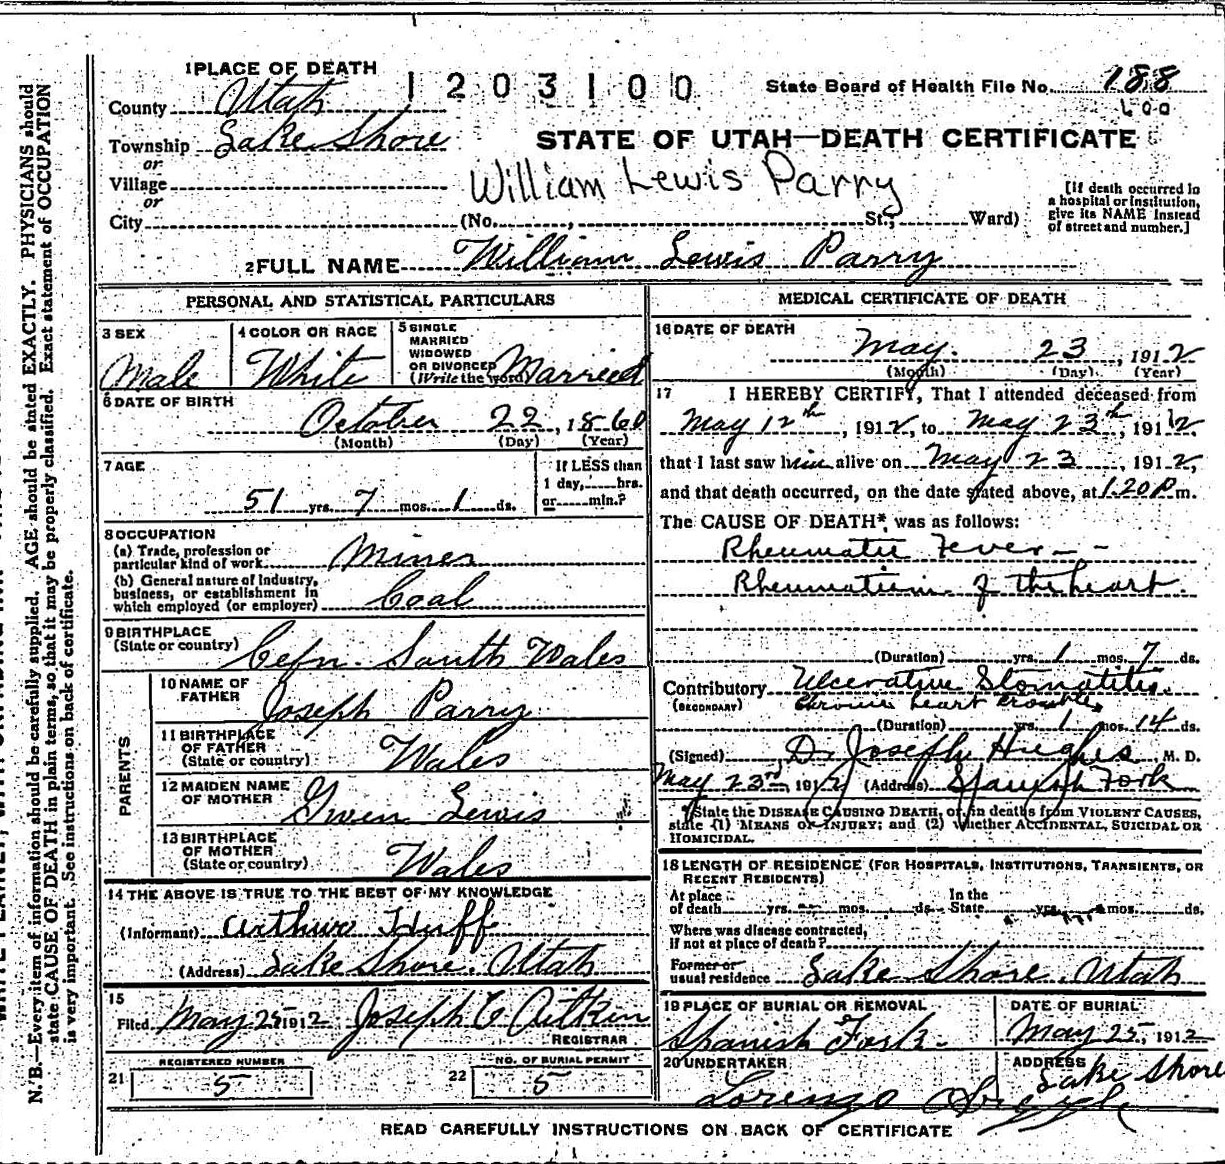 1 PLACE OF DEATH
1203100
State Board of Health File No. 188
600
County Utah
Township Lake Shore
or
Village
or
City (No. , St.; Ward)
STATE OF UTAH—DEATH CERTIFICATE
William Lewis Parry
[If death occurred in
a hospital or institution,
give its NAME instead
of street and number.]
2 FULL NAME William Lewis Parry
PERSONAL AND STATISTICAL PARTICULARS
3 SEX
Male
4 COLOR OR RACE
White
5 SINGLE
MARRIED
WIDOWED
OR DIVORCED
(Write the word) Married
6 DATE OF BIRTH
October 22, 1860
(Month) (Day) (Year)
7 AGE
51 yrs. 7 mos. 1 ds.
If LESS than
1 day, hrs.
or min.?
8 OCCUPATION
(a) Trade, profession or
particular kind of work Miner
(b) General nature of Industry,
business, or establishment in
which employed (or employer) Coal
9 BIRTHPLACE
(State or country) Cefn South Wales
PARENTS
10 NAME OF
FATHER Joseph Parry
11 BIRTHPLACE
OF FATHER
(State or country) Wales
12 MAIDEN NAME
OF MOTHER Gwen Lewis
13 BIRTHPLACE
OF MOTHER
(State or country) Wales
14 THE ABOVE IS TRUE TO THE BEST OF MY KNOWLEDGE
(Informant) Arthur Huff
(Address) Lake Shore, Utah
15
Filed May 25 1912 Joseph C Aitkin
REGISTRAR
REGISTERED NUMBER
21 5
NO. OF BURIAL PERMIT
22 5
MEDICAL CERTIFICATE OF DEATH
16 DATE OF DEATH
May 23, 1912
(Month) (Day) (Year)
17 I HEREBY CERTIFY, That I attended deceased from
May 12th, 1912, to May 23th, 1912
that I last saw him alive on May 23, 1912,
and that death occurred, on the date stated above, at 1.20 P m.
The CAUSE OF DEATH* was as follows:
Rheumatic Fever
Rheumatism of the heart
(Duration) yrs. 1 mos. 7 ds.
Contributory Ulcerative Stomatitis.
(SECONDARY) Chronic heart trouble,
(Duration) yrs. 1 mos. 14 ds.
(Signed) D. Joseph Hughes M. D.
May 23rd, 1912 (Address) Spanish Fork
*State the DISEASE CAUSING DEATH, or, in deaths from VIOLENT CAUSES,
state (1) MEANS OF INJURY; and (2) whether ACCIDENTAL, SUICIDAL OR
HOMICIDAL.
18 LENGTH OF RESIDENCE (FOR HOSPITALS, INSTITUTIONS, TRANSIENTS, OR
RECENT RESIDENTS)
At place In the
of death yrs. mos. ds. State yrs. mos. ds.
Where was disease contracted,
if not at place of death?
Former or
usual residence Lake Shore, Utah
19 PLACE OF BURIAL OR REMOVAL
Spanish Fork
DATE OF BURIAL
May 25, 1912
20 UNDERTAKER
Lorenzo
ADDRESS
Lake Shore
READ CAREFULLY INSTRUCTIONS ON BACK OF CERTIFICATE
N. B.—Every item of information should be carefully supplied. AGE should be stated EXACTLY. PHYSICIANS should
state CAUSE OF DEATH in plain terms, so that it may be properly classified. Exact statement of OCCUPATION
is very important. See instructions on back of certificate.